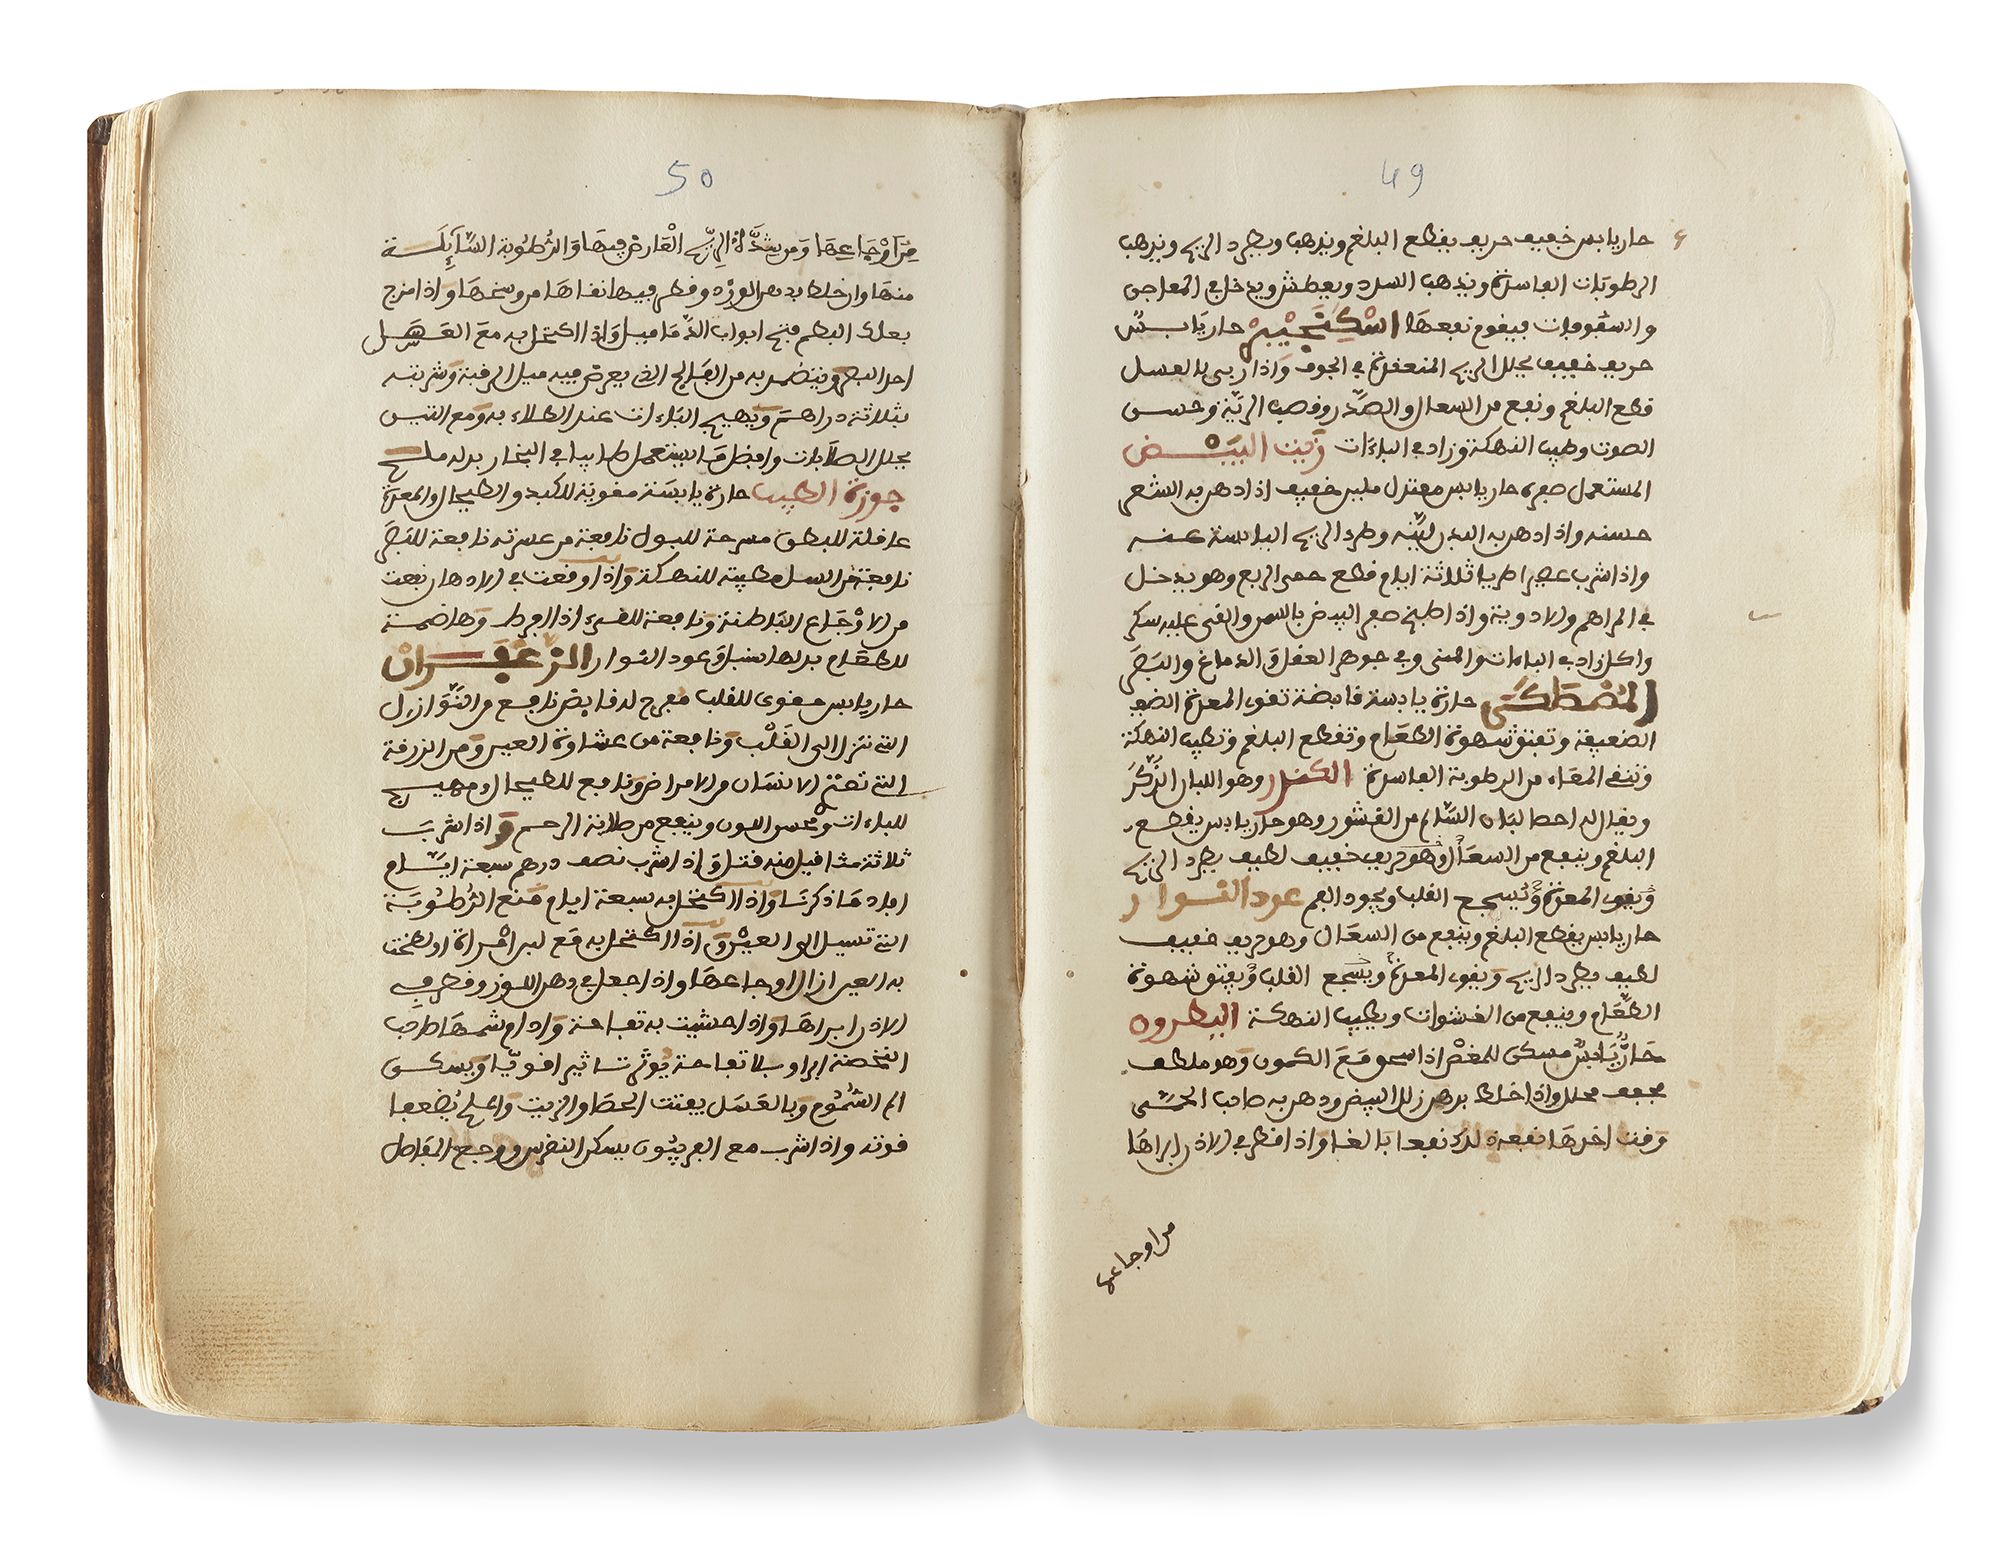 49
حار يابس خفيف حريف يقطع البلغم ويذهب ويطرد الريح ويذهب
الرطوبات الفاسدة ويذهب السدد ويعطش ويدخل في المعاجن
والسفوفات فيقوم نفعها اسكنجبير حار يابس
حريف خفيف يحلل الريح المنعقدة في الجوف واذا ربي بالعسل
قطع البلغم ونفع من السعال والصدر وقصب الرية وحسن
الصوت وطيب النهكة وزاد في الباءات زيت البيض
المستعمل صفرة حار يابس معتدل ملين خفيف اذا دهن به الشعر
حسنه واذا دهن به البدن لينه وطرد الريح اليابسة عنه
واذا شرب على الريق ثلاثة ايام قطع حمى الربع وهو يدخل
في المراهم والادوية واذا طبخ صفر البيض بالسمن والقي عليه سكر
واكل زاد في الباءات والمني وفي جوهر العقل والدماغ والبصر
المصطكى حارة يابسة قابضة تقوي المعدة الضعيـ
الضعيفة وتفتق شهوة الطعام وتقطع البلغم وتطيب النهكة
وتنقي المعاء من الرطوبة الفاسدة الكندر وهو اللبان الذكر
ويقال له احصا لبان السالم من القشور وهو حار يابس يقطع
البلغم وينفع من السعال وهو حريف خفيف لطيف يطرد الريح
ويقوي المعدة ويسجع القلب ويجود الفم عود النوار
حار يابس يقطع البلغم وينفع من السعال وهو حريف خفيف
لطيف يطرد الريح ويقوي المعدة ويسجع القلب ويفتق شهوة
الطعام وينفع من الغشوات ويطيب النهكة البطرون
حار يابس مسكن للمغص اذا سحق مع الكمون وهو ملطف
مجفف محلل واذا خلط بدهن زلل البيض ودهن به صاحب الحمى
وقت اخذها نفعه لذلك نفعا بالغا واذا قطر في الاذن ابراها
من اوجاعها
50
من اوجاعها ومن شدة الريح العارض فيها والرطوبة السايلة
منها وان خلط بدهن الورد وقطر فيها نقاها من وسخها واذا مزج
بعلك البطم فتح ابواب الدماميل واذا اكتحل به مع العسل
احد البصر ويتضمد به من الفالج الذي يعرض فيه ميل الرقبة وشربته
ثلاثة دراهم ويهيج الباءات عند الطلاء به ومع التيس
يحلل الصلابات وافضل ما يستعمل طايبا في البخار بدله ملح
جوزة الطيب حارة يابسة مقوية للكبد والطيحال والمعدة
عاقلة للبطن مسرحة للبول نافعة من عسرته نافعة للبصر
نافعة من السل مطيبة للنهكة واذا وقعت في الادهان نفعت
من الاوجاع الباطنة ونافعة للقيء اذا افرط وهاضمة
للطعام بدلها سنبل وعود النوار الزعفران
حار يابس مقوي للقلب مفرح له قابض نافع من النوازل
التي تنزل الى القلب ونافعة من غشاوة العين ومن الزرقة
التي تعتر الانسان من الامراض ونافع للطيحال ومهيج
للباءات ومحسن اللون وينفع من صلابة الرحم واذا شرب
ثلاثة مثاقيل منه قتل واذا شرب نصف درهم سبعة ايام
افاد ما ذكرنا واذا اكتحل به سبعة ايام منع الرطوبة
التي تسيل الى العين واذا اكتحل به مع لبن امراة او لطخت
به العين ازال اوجاعها واذا جعل في دهن اللوز وقطر في
الاذن ابراها واذا حشيت به تفاحة وادام شمها صاحب
الخصة ابراه بلا تفاحة يؤثر تاثيرا قويا ويسكن
الم السموم وبالعسل يفتت الحصا والزيت والملح يضعفا
قوته واذا شرب مع الفربيون يسكن النقرس ووجع المفاصل